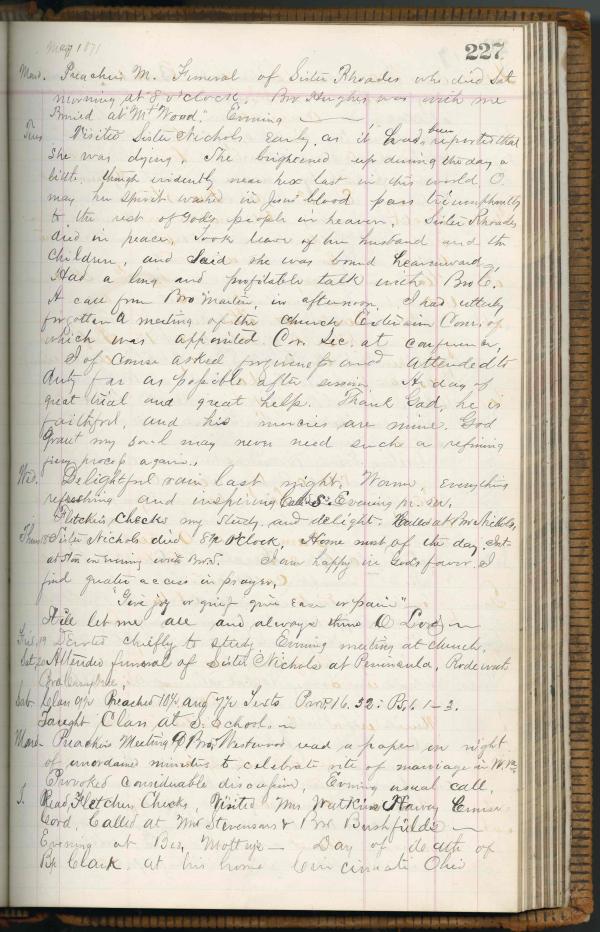 May 1871
227
Mond. Preachers M. Funeral of Sister Rhoades who died Sat
morning at 8 o'clock. Bro Hughes was with me
at "Mt Wood" Evening
Tues Visited Sister Nichols early as it had been reported that
she was dying. She brightened up during the day a
little, though evidently near her last in this world O
may her spirit washed in Jesus' blood pass triumphantly
to the rest of Gods people in heaven. Sister Rhoades
died in peace, Took leave of her husband and the
children, and said she was bound heavenward,
Had a long and profitable talk with Bro C.
A call from Bro Martin, in afternoon, I had utterly
forgotten a meeting of the Church Extension Com. of
which was appointed Cor. Sec. at conference,
I of course asked forgiveness and attended to
duty far as possible after session. A day of
great trial and great help. Thank God, he is
faithful, and his mercies are mine. God
grant my soul may never need such a refining
fiery process again.
Wed. Delightful rain last night. Warm, everything
refreshing and inspiring Evening pr. m.
Fletchers Checks my study and delight. Called at Bro Nichols,
Thurs 18 Sister Nichols died 8½ o'clock, Home most of the day.
in evening with Bro. I am happy in Gods favor. I
find greater access in prayer,
"Give joy or grief give ease or pain"
let me all and always thine O Lord
Frid. 19 Devoted chiefly to study, Evening meeting at church.
Sat 20 Attended funeral of Sister Nichols at Peninsula, Rode with

Sab Class 9½ Preached 10½ and 7½ Texts Prov 16. 32: Ps. 61 1-3.
Taught Class at S. School.
Mond Preachers Meeting Bro. Westwood read a paper on right
of unordained ministers to celebrate rite of marriage in W. Va
Provoked considerable discussion, Evening usual call,
T. Read Fletchers Checks. Visited Mrs Watkins
Cord, Called at Mr Stevensons & Bro Bushfields
Evening at Bro Day of death of
Bp Clark. at his home Cincinnati Ohio